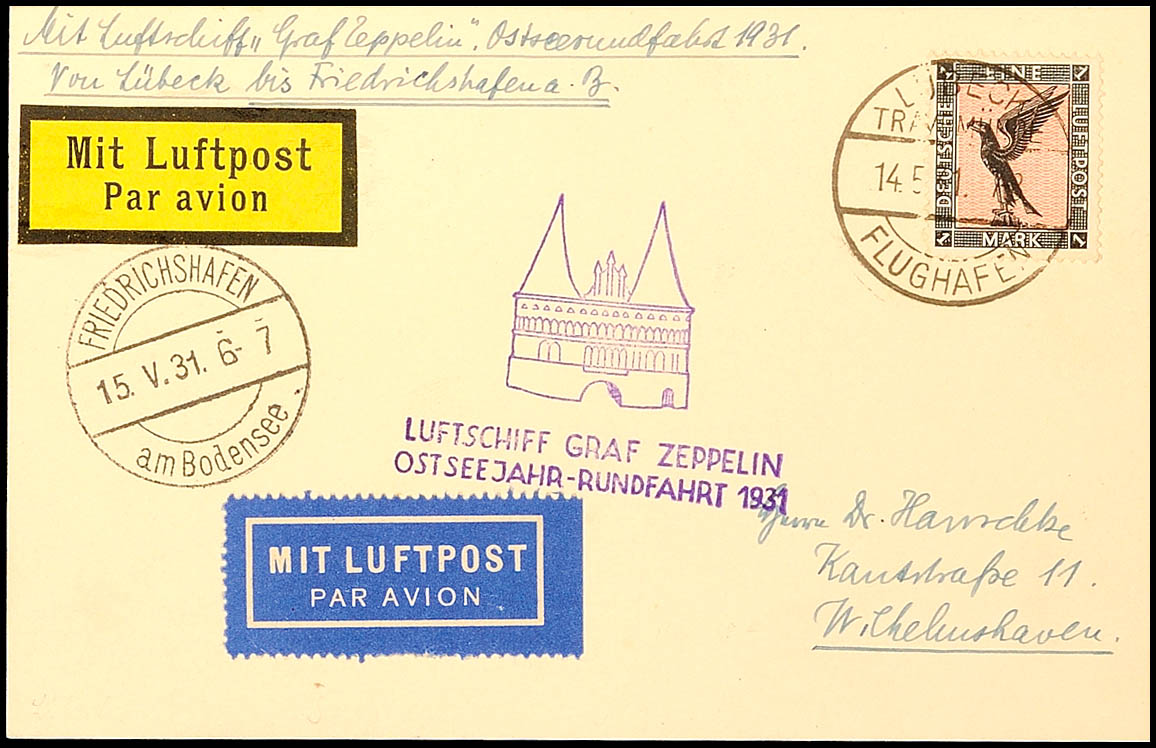 Mit Luftschiff „Graf Zeppelin“. Ostseerundfahrt 1931.
Von Lübeck bis Friedrichshafen a. B.
Mit Luftpost
Par avion
LÜBECK
TRAVEMÜNDE
14.5
FLUGHAFEN
EINE
DEUTSCHE
LUFTPOST
1 MARK 1
FRIEDRICHSHAFEN
15. V. 31. 6-7
am Bodensee
LUFTSCHIFF GRAF ZEPPELIN
OSTSEEJAHR-RUNDFAHRT 1931
MIT LUFTPOST
PAR AVION
Herrn Dr. Hanschke
Kantstraße 11.
Wilhelmshaven.